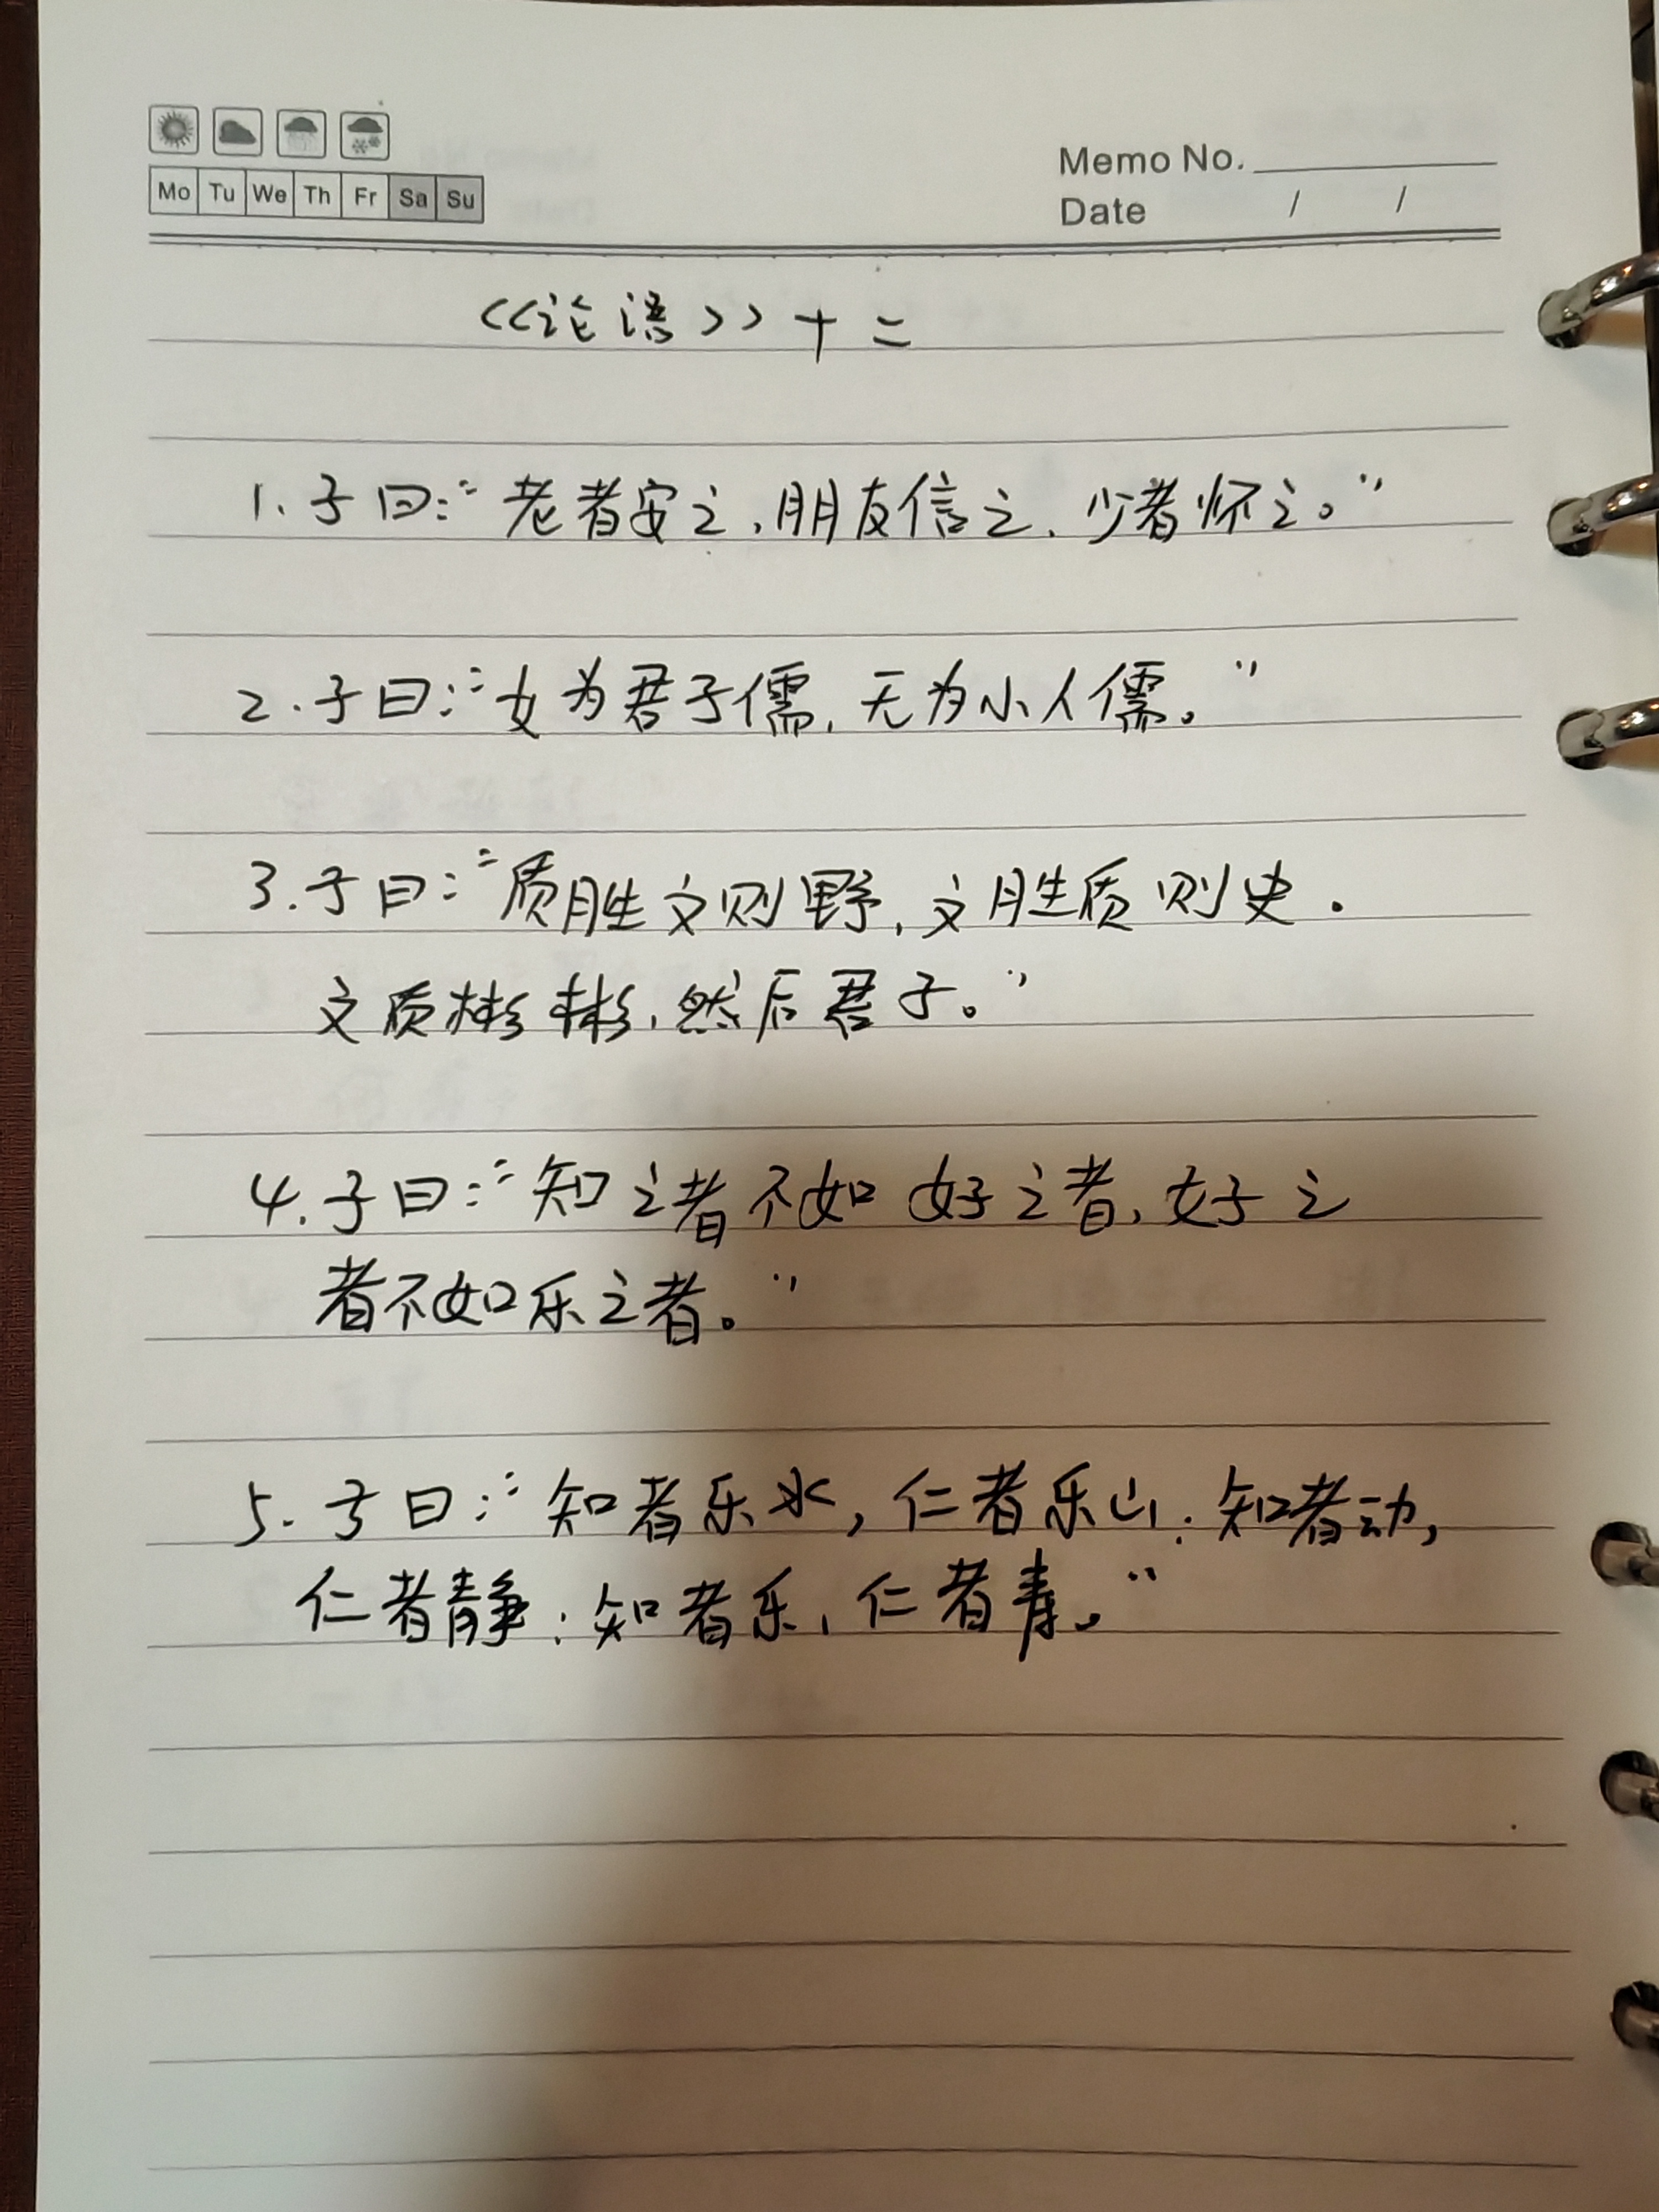 Mo Tu We Th Fr Sa Su
Memo No.
Date / /
《论语》十二
1.子曰:“老者安之,朋友信之,少者怀之。”
2.子曰:“女为君子儒,无为小人儒。”
3.子曰:“质胜文则野,文胜质则史.
文质彬彬,然后君子。”
4.子曰:“知之者不如好之者,好之
者不如乐之者。”
5.子曰:“知者乐水,仁者乐山;知者动,
仁者静;知者乐,仁者寿。”